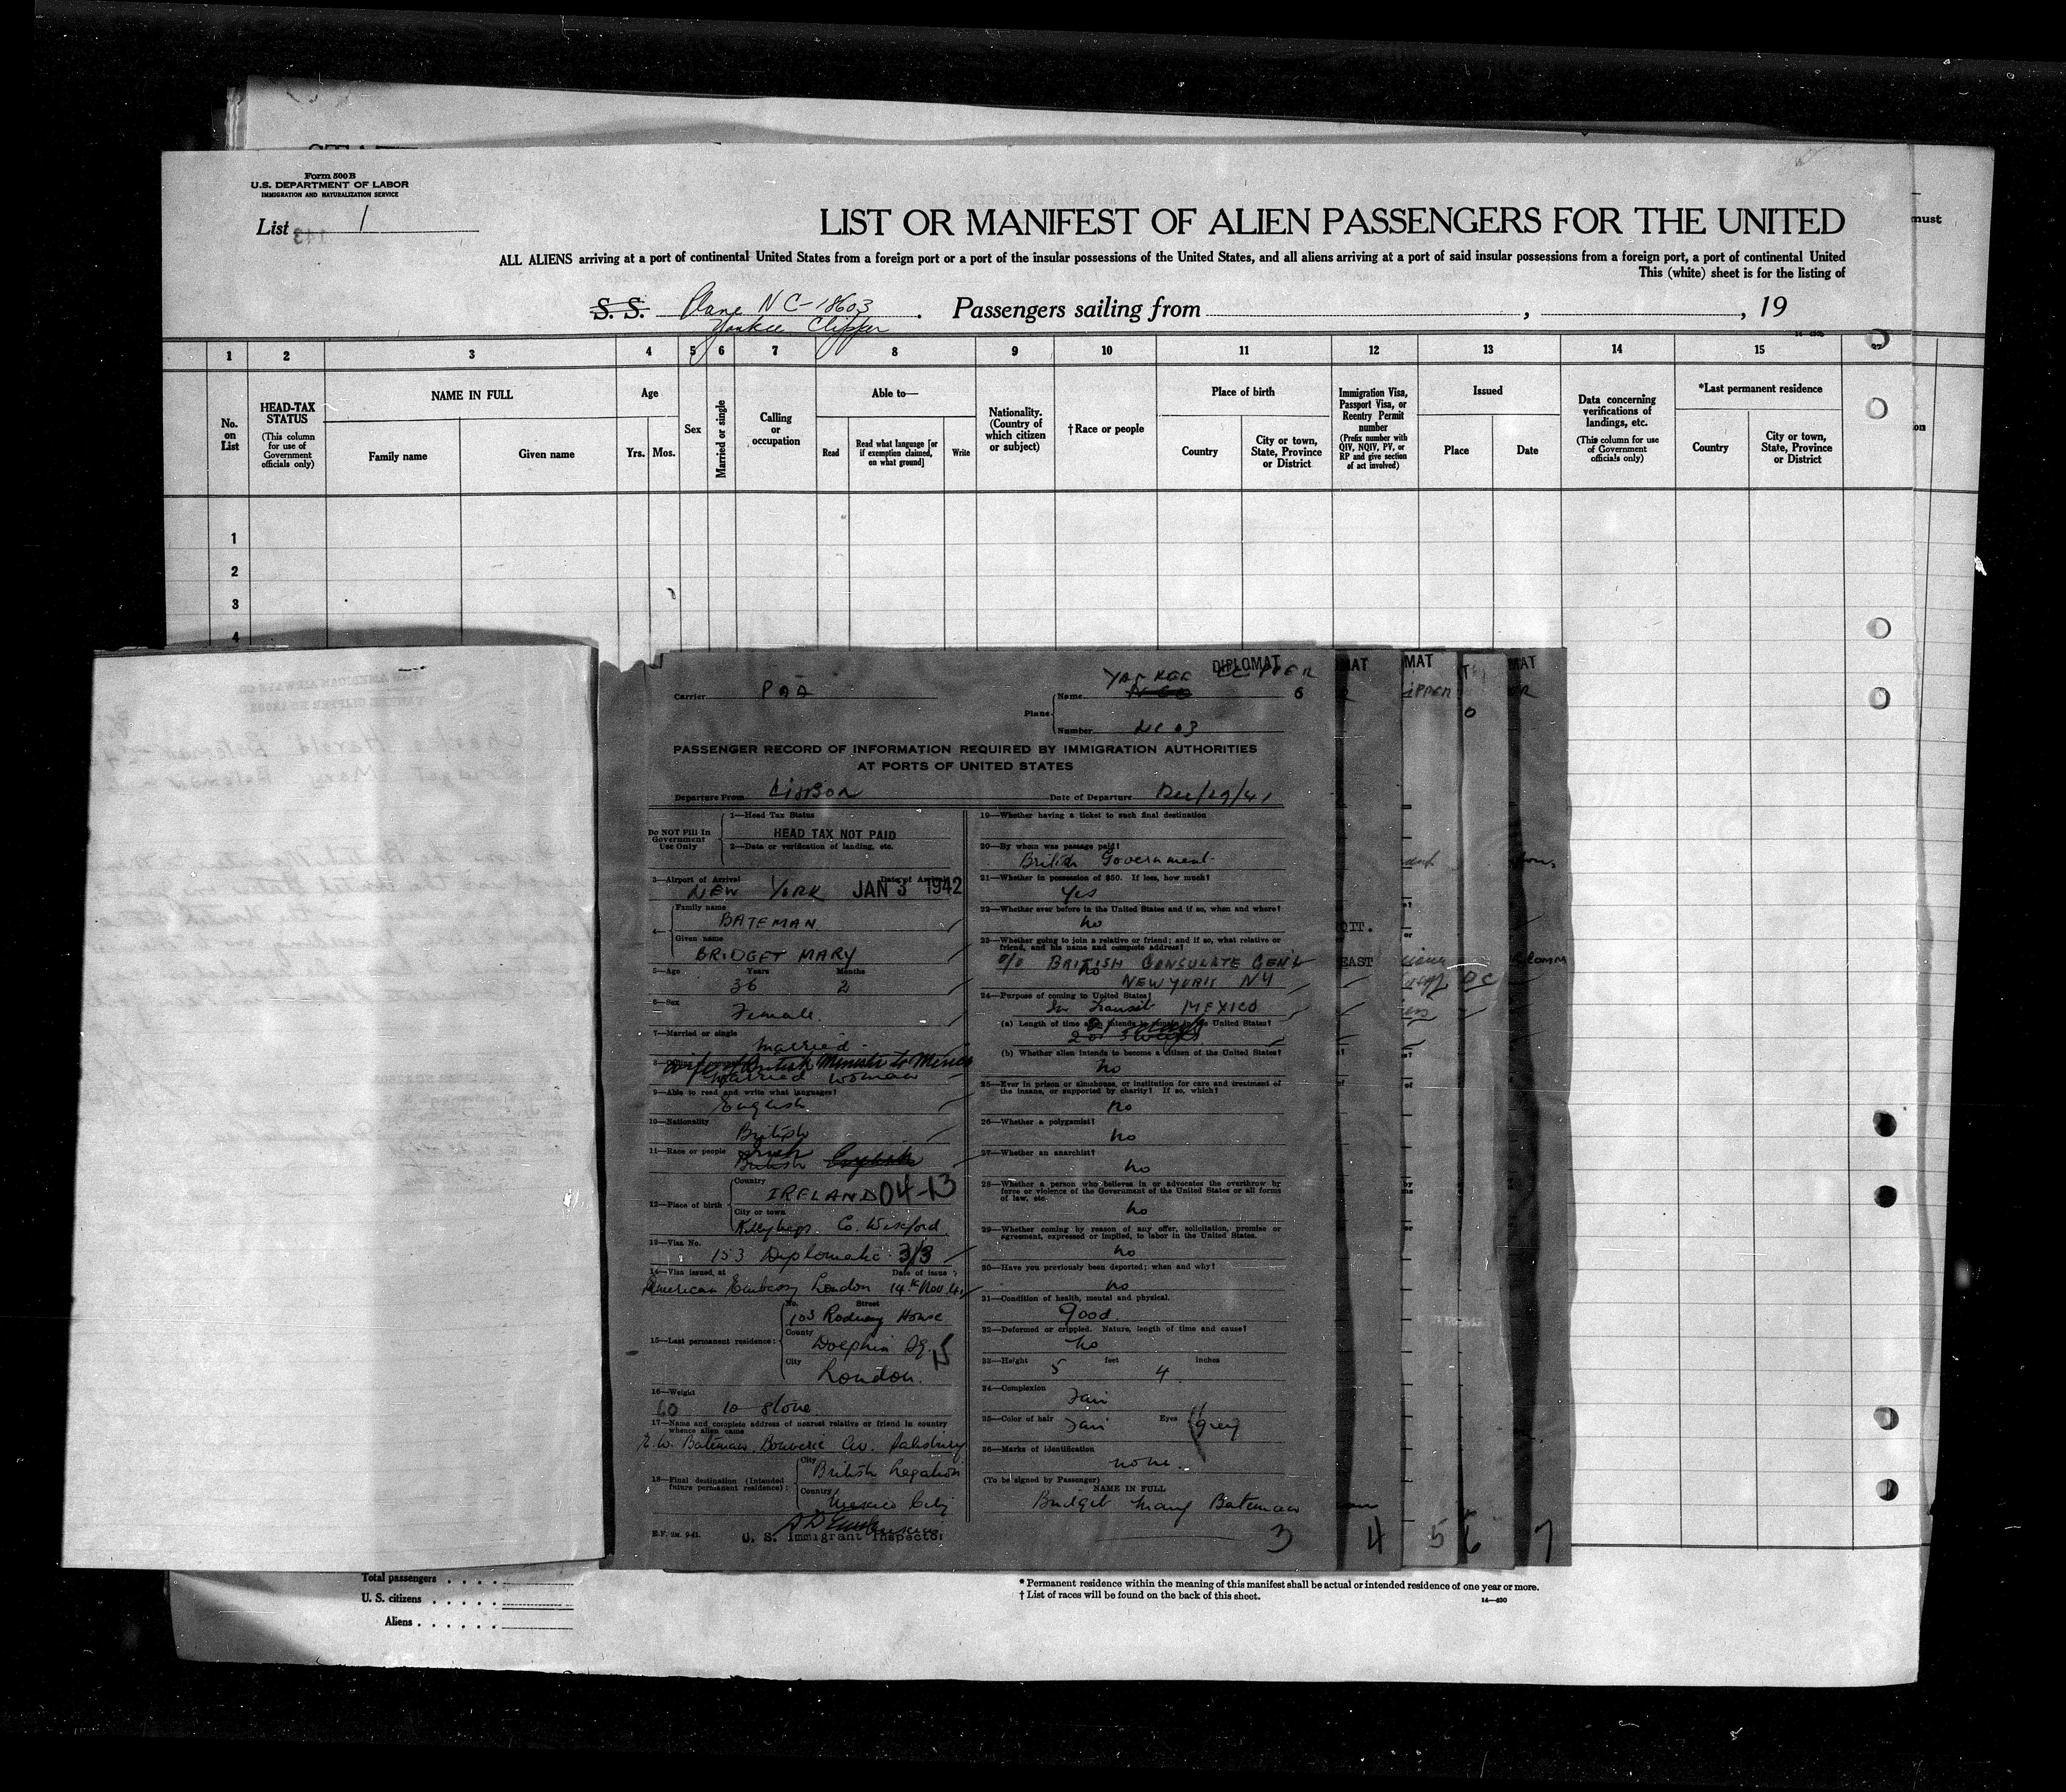 Form 500 B
U.S. DEPARTMENT OF LABOR
IMMIGRATION AND NATURALIZATION SERVICE
List 1
LIST OR MANIFEST OF ALIEN PASSENGERS FOR THE UNITED
must
ALL ALIENS arriving at a port of continental United States from a foreign port or a port of the insular possessions of the United States, and all aliens arriving at a port of said insular possessions from a foreign port, a port of continental United
This (white) sheet is for the listing of
S. S. Plane NC-18603
Yankee Clipper
Passengers sailing from , , 19
1 2 3 4 5 6 7 8 9 10 11 12 13 14 15
No. on List
HEAD-TAX STATUS
(This column for use of Government officials only)
NAME IN FULL
Family name
Given name
Age
Yrs. Mos.
Sex
Married or single
Calling or occupation
Able to—
Read
Read what language [or if exemption claimed, on what ground]
Write
Nationality. (Country of which citizen or subject)
†Race or people
Place of birth
Country
City or town, State, Province or District
Immigration Visa, Passport Visa, or Reentry Permit number
(Prefix number with QIV, NQIV, PV, or RP and give section of act involved)
Issued
Place
Date
Data concerning verifications of landings, etc.
(This column for use of Government officials only)
*Last permanent residence
Country
City or town, State, Province or District
1
2
3
4
DIPLOMAT
Carrier PAA
Plane
Name YANKEE CLIPPER 6
Number NC 03
PASSENGER RECORD OF INFORMATION REQUIRED BY IMMIGRATION AUTHORITIES
AT PORTS OF UNITED STATES
Departure From LISBON
Date of Departure Dec/29/41
Do NOT Fill In Government Use Only
1—Head Tax Status
HEAD TAX NOT PAID
2—Data or verification of landing, etc.
3—Airport of Arrival Date of Arrival
NEW YORK JAN 3 1942
4—
Family name
BATEMAN
Given name
BRIDGET MARY
5—Age Years Months
36 2
6—Sex
Female.
7—Married or single
Married
wife of British Minister to Mexico
Married Woman
9—Able to read and write what languages?
English
10—Nationality
British
11—Race or people Irish
British English
12—Place of birth
Country
IRELAND 04-13
City or town
Co. Wexford
13—Visa No.
153 Diplomatic 3/3
14—Visa issued, at Date of issue
American Embassy London 14th Nov. 41
15—Last permanent residence:
No. Street
103 Rodney House
County
Dolphin Sq.
City
London.
16—Weight
10 stone
17—Name and complete address of nearest relative or friend in country
whence alien came
E.W. Bateman, Bouverie Av. Salisbury
18—Final destination (Intended future permanent residence):
City
British Legation
Country
Mexico City
U. S. Immigrant Inspector
19—Whether having a ticket to such final destination
20—By whom was passage paid?
British Government
21—Whether in possession of $50. If less, how much?
Yes
22—Whether ever before in the United States and if so, when and where?
no
23—Whether going to join a relative or friend; and if so, what relative or
friend, and his name and complete address?
c/o BRITISH CONSULATE GEN'L
no
NEW YORK NY
24—Purpose of coming to United States?
In Transit MEXICO
(a) Length of time alien intends to remain in the United States?
(b) Whether alien intends to become a citizen of the United States?
no
25—Ever in prison or almshouse, or institution for care and treatment of
the insane, or supported by charity? If so, which?
no
26—Whether a polygamist?
no
27—Whether an anarchist?
no
28—Whether a person who believes in or advocates the overthrow by
force or violence of the Government of the United States or all forms
of law, etc.
no
29—Whether coming by reason of any offer, solicitation, promise or
agreement, expressed or implied, to labor in the United States.
no
30—Have you previously been deported; when and why?
no
31—Condition of health, mental and physical.
good.
32—Deformed or crippled. Nature, length of time and cause?
no
33—Height 5 feet 4 inches
34—Complexion
Fair
35—Color of hair Fair Eyes grey
36—Marks of identification
none.
(To be signed by Passenger)
NAME IN FULL
Bridget Mary Bateman
3 4 5 6 7
Total passengers
U. S. citizens
Aliens
* Permanent residence within the meaning of this manifest shall be actual or intended residence of one year or more.
† List of races will be found on the back of this sheet.
14—430